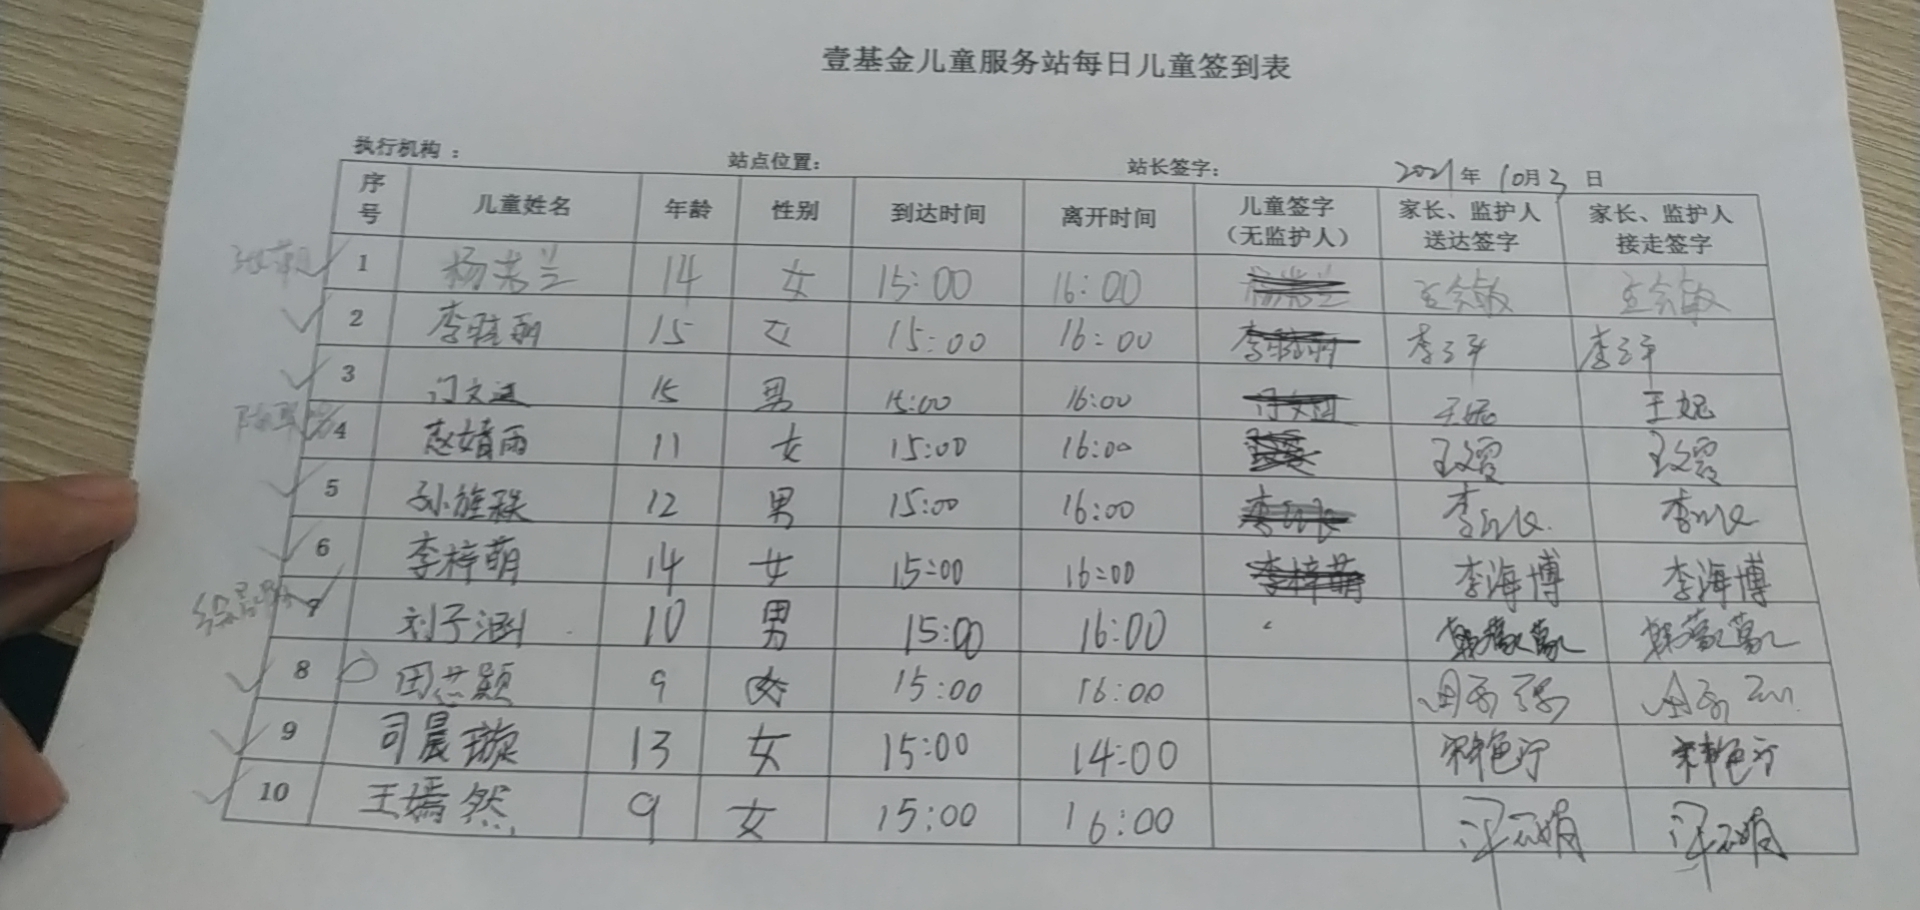 壹基金儿童服务站每日儿童签到表
执行机构： 站点位置： 站长签字： 2021年 10月3 日
序号 儿童姓名 年龄 性别 到达时间 离开时间 儿童签字（无监护人） 家长、监护人送达签字 家长、监护人接走签字
1 杨 兰 14 女 15:00 16:00
2 李 15 女 15:00 16:00 李 平 李 平
3 门文 15 男 15:00 16:00 王妮 王妮
4 赵婧雨 11 女 15:00 16:00 王文霞 王文霞
5 孙 12 男 15:00 16:00 李 李
6 李梓萌 14 女 15:00 16:00 李梓萌 李海博 李海博
7 刘子涵 10 男 15:00 16:00
8 田芯颖 9 女 15:00 16:00
9 司晨璇 13 女 15:00 14:00
10 王嫣然 9 女 15:00 16:00